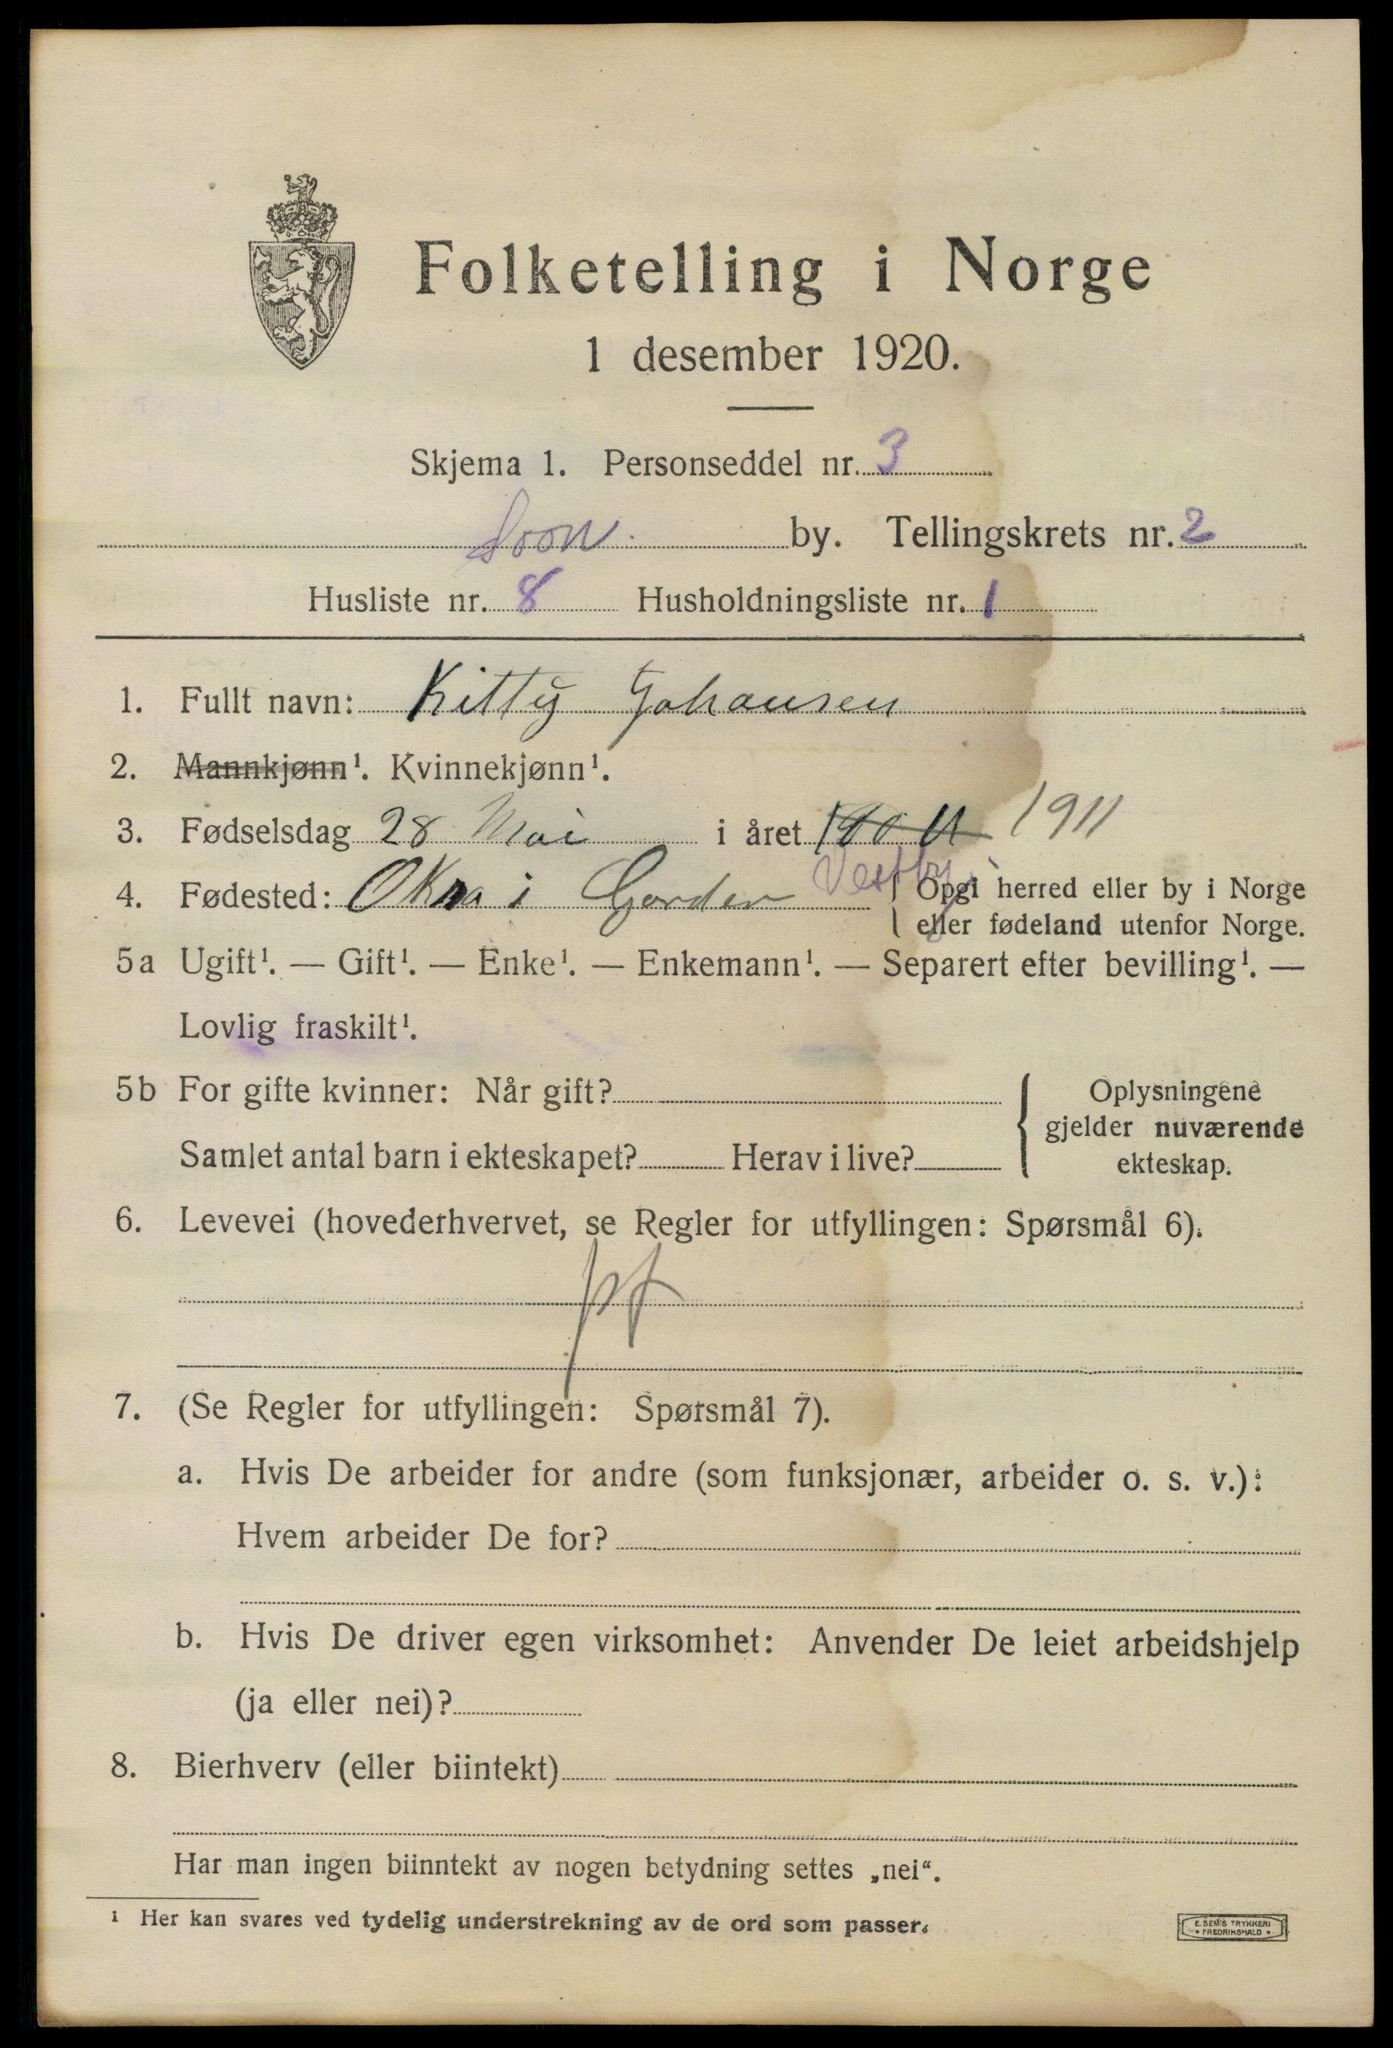 Folketelling i Norge
1 desember 1920.
Skjema 1. Personseddel nr. 3
Soon. by. Tellingskrets nr. 2
Husliste nr. 8 Husholdningsliste nr. 1
1. Fullt navn: Kitty Johansen
2. Mannkjønn¹. Kvinnekjønn¹.
3. Fødselsdag 28 Mai i året 1911
4. Fødested: i Vestby { Opgi herred eller by i Norge
eller fødeland utenfor Norge.
5a Ugift¹. — Gift¹. — Enke¹. — Enkemann¹. — Separert efter bevilling¹. —
Lovlig fraskilt¹.
5b For gifte kvinner: Når gift? { Oplysningene
gjelder nuværende
Samlet antal barn i ekteskapet? Herav i live? ekteskap.
6. Levevei (hovederhvervet, se Regler for utfyllingen: Spørsmål 6).
7. (Se Regler for utfyllingen: Spørsmål 7).
a. Hvis De arbeider for andre (som funksjonær, arbeider o. s. v.):
Hvem arbeider De for?
b. Hvis De driver egen virksomhet: Anvender De leiet arbeidshjelp
(ja eller nei)?
8. Bierhverv (eller biintekt)
Har man ingen biinntekt av nogen betydning settes „nei“.
¹ Her kan svares ved tydelig understrekning av de ord som passer.
E. SEM'S TRYKKERI
• FREDRIKSHALD •